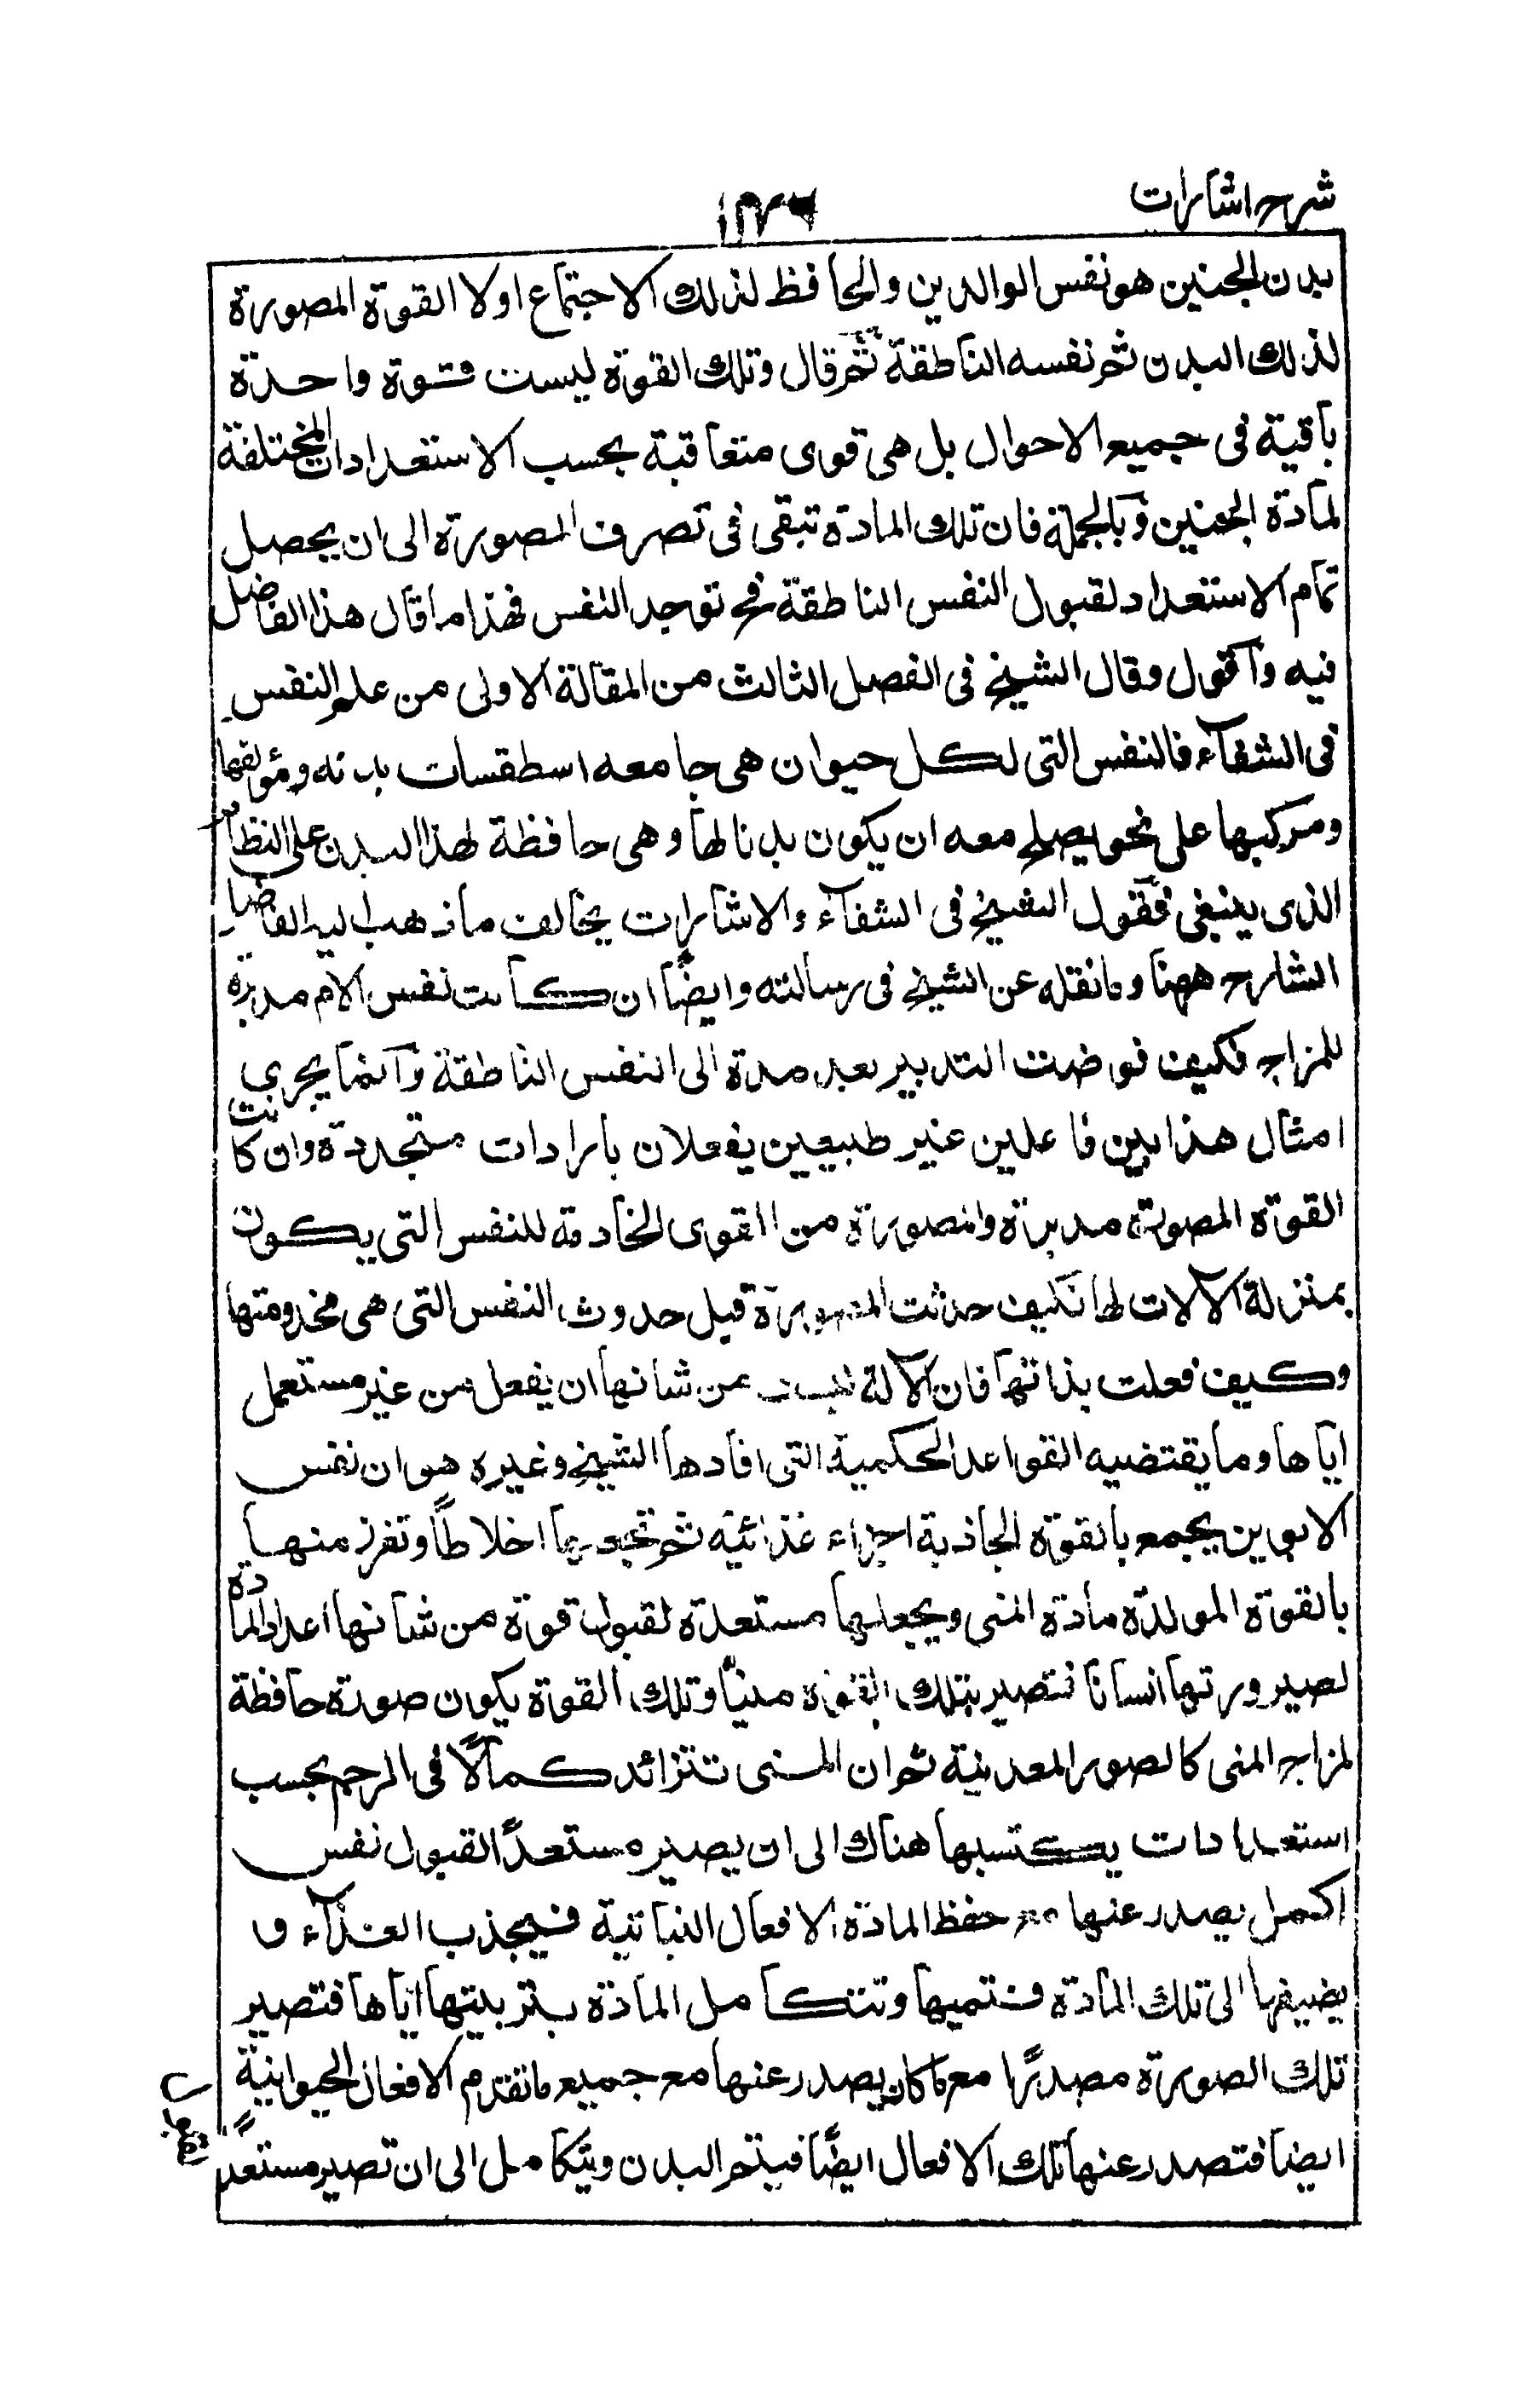 شرح اشارات
بدن الجنين هو نفس الوالدين والحافظ لذلك الاجتماع اولا القوة المصورة
لذلك البدن ثم نفسه الناطقة ثم قال وتلك القوة ليست قوة واحدة
باقية فى جميع الاحوال بل هى قوى متعاقبة بحسب الاستعدادات المختلفة
لمادة الجنين وبالجملة فان تلك المادة تبقى فى تصرف المصورة الى ان يحصل
تمام الاستعداد لقبول النفس الناطقة فح توجد النفس فهذا ما قال هذا الفاضل
فيه واقول وقال الشيخ فى الفصل الثالث من المقالة الاولى من علم النفس
فى الشفاء فالنفس التى لكل حيوان هى جامعه اسطقسات بدنه ومؤلفها
ومركبها على نحو يصلح معه ان يكون بدنا لها وهى حافظة لهذا البدن على النظام
الذى ينبغى فقول الشيخ فى الشفاء والاشارات يخالف ما ذهب اليه الفاضل
الشارح ههنا وما نقله عن الشيخ فى رسالته وايضا ان كانت نفس الام مدبرة
للمزاج فكيف فوضت التدبير بعد مدة الى النفس الناطقة وانما يجرى
امثال هذا بين فاعلين غير طبيعين يفعلان بارادات متجددة وان كانت
القوة المصورة مدبرة والمصورة من القوى الخادمة للنفس التى يكون
بمنزلة الآلات لها فكيف حدثت المصورة قبل حدوث النفس التى هى مخدومتها
وكيف فعلت بذاتها فان الآلة ليست من شانها ان يفعل من غير مستعمل
اياها وما يقتضيه القواعد الحكمية التى افادها الشيخ وغيره هو ان نفس
الابوين يجمع بالقوة الجاذبة اجزاء غذائية ثم تجعلها اخلاطا وتفرز منها
بالقوة المولدة مادة المنى ويجعلها مستعدة لقبول قوة من شانها اعداد المادة
لصيرورتها انسانا فتصير بتلك القوة منيا وتلك القوة يكون صورة حافظة
لمزاج المنى كالصور المعدنية ثم ان المنى تتزائد كمالا فى الرحم بحسب
استعدادات يكتسبها هناك الى ان يصير مستعدا لقبول نفس
اكمل يصدر عنها مع حفظ المادة الافعال النباتية فيجذب الغذاء و
يضيفها الى تلك المادة فتنميها وتتكامل المادة بتربيتها اياها فتصير
تلك الصورة مصدرا مع ما كان يصدر عنها مع جميع ما تقدم الافعال الحيوانية
ايضا فتصدر عنها تلك الافعال ايضا فيتم البدن ويتكامل الى ان تصير مستعدا